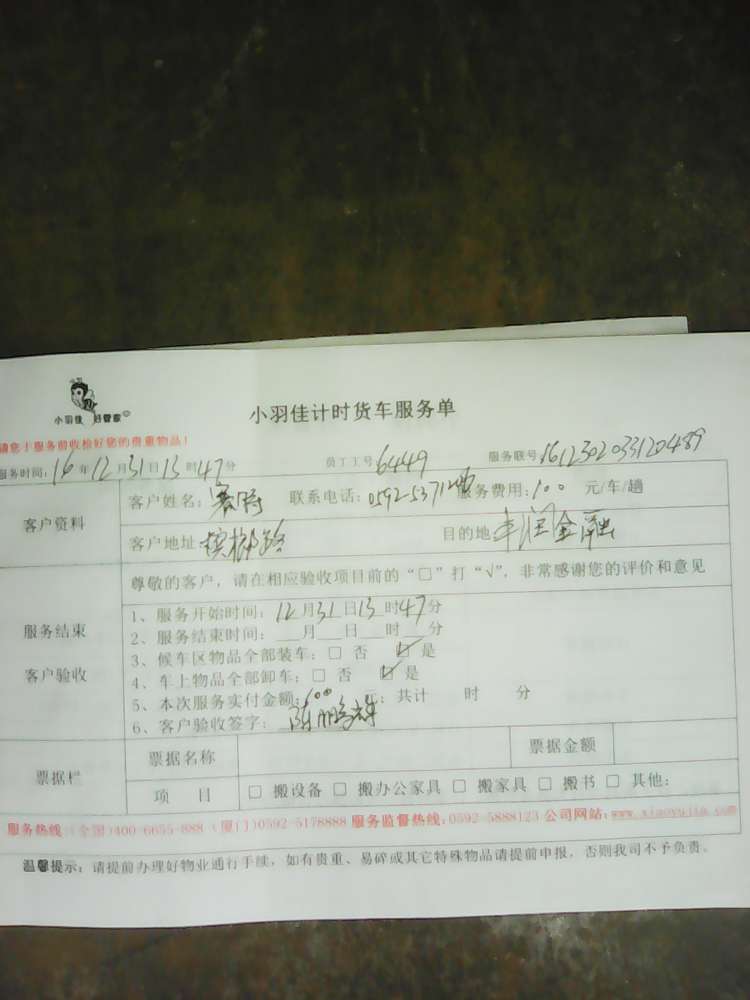 小羽佳 好管家
小羽佳计时货车服务单
请您于服务前收检好您的贵重物品！
服务时间：16年12月31日13时47分 员工工号6449 服务联号1612302033120489
客户资料
客户姓名： 联系电话：0592537 服务费用：100 元/车/趟
客户地址 槟榔路 目的地 丰润金融
服务结束
客户验收
尊敬的客户，请在相应验收项目前的“□”打“√”，非常感谢您的评价和意见
1、服务开始时间：12月31日13时47分
2、服务结束时间：___月___日___时___分
3、候车区物品全部装车：□ 否 ☑ 是
4、车上物品全部卸车：□ 否 ☑ 是
5、本次服务实付金额：100 元；共计 时 分
6、客户验收签字：陈鹏辉
票据栏
票据名称 票据金额
项 目 □ 搬设备 □ 搬办公家具 □ 搬家具 □ 搬书 □ 其他：
服务热线：（全国）400-6655-888（厦门）0592-5178888 服务监督热线：0592-5888123 公司网站：www.xiaoyujia.com
温馨提示：请提前办理好物业通行手续，如有贵重、易碎或其它特殊物品请提前申报，否则我司不予负责。